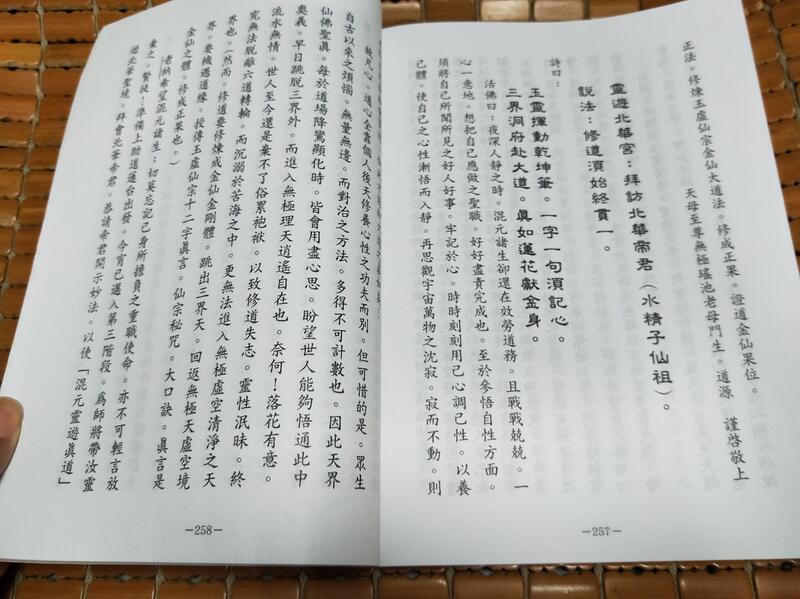 正法。修煉玉虛仙宗金仙大道法。修成正果。證道金仙果位。
天母至尊無極瑤池老母門生。道源　謹啓敬上
靈遊北華宮：拜訪北華帝君（水精子仙祖）。
說法：修道須始終貫一。
詩曰：
玉靈揮動乾坤筆。一字一句須記心。
三界洞府赴大道。真如蓮花獻金身。
活佛曰：夜深人靜之時。混元諸生卻還在效勞道務。且戰戰兢兢。一
心一意地。想把自己應做之聖職。好好盡責完成也。至於參悟自性方面。
須將自己所聞所見之好人好事。牢記於心。時時刻刻用己心調己性。以養
己體。使自己之心性漸悟而入靜。再思觀宇宙萬物之沈寂。寂而不動。則
—257—
凡心。道心全靠個人後天修養心性之功夫而別。但可惜的是。眾生
自古以來之煩惱。無量無邊。而對治之方法。多得不可計數也。因此天界
仙佛聖真。每於道場降鸞顯化時。皆會用盡心思。盼望世人能夠悟通此中
奧義。早日跳脫三界外。而進入無極理天逍遙自在也。奈何！落花有意。
流水無情。世人至今還是棄不了俗累袍袱。以致修道失志。靈性泯昧。終
究無法脫離六道轉輪。而沉溺於苦海之中。更無法進入無極虛空清淨之天
界也。（然而。修道要修煉成金仙金剛體。跳出三界天。回返無極天虛空境
界。要機遇道緣。授傳玉虛仙宗十二字真言。仙宗秘咒。大口訣。真言是
金仙之體。修成正果也。）
老衲希望混元諸生：切莫忘記己身所擔負之重職使命。亦不可輕言放
棄之。賢徒！準備上助道蓮台出發。今宵已邁入第三階段。為師將帶汝靈
遊北華聖境。拜會北華帝君。恭請帝君開示妙法。以使「混元靈遊真道」
—258—